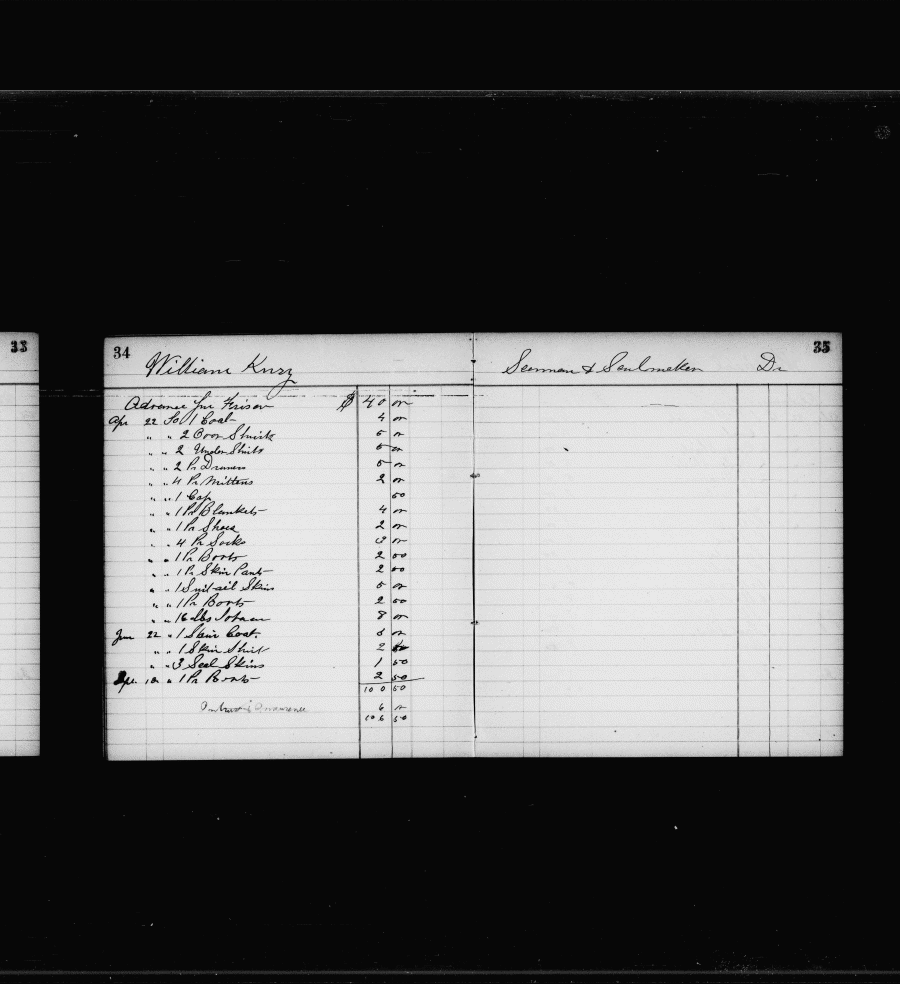 33
34
William Knrz
Seaman & Sealmaker Dr
35
Advance fm Frisco $ 40 00
Apr 22 To 1 Coat 4 00
" " 2 Over Shirts 5 00
" " 2 Under Shirts 5 00
" " 2 Pr Drawers 5 00
" " 4 Pr Mittens 2 00
" " 1 Cap 50
" " 1 Pr Blankets 4 00
" " 1 Pr Shoes 2 00
" " 4 Pr Socks 3 00
" " 1 Pr Boots 2 00
" " 1 Pr Skin Pants 2 00
" " 1 Suit oil Skins 5 00
" " 1 Pr Boots 2 00
" " 16 lbs Tobacco 8 00
Jun 22 " 1 Skin Coat. 6 00
" " 1 Skin Shirt 2
" " 3 Seal Skins 1 50
Sep. 10 " 1 Pr Boots 2 50
100 50
6 00
106 50